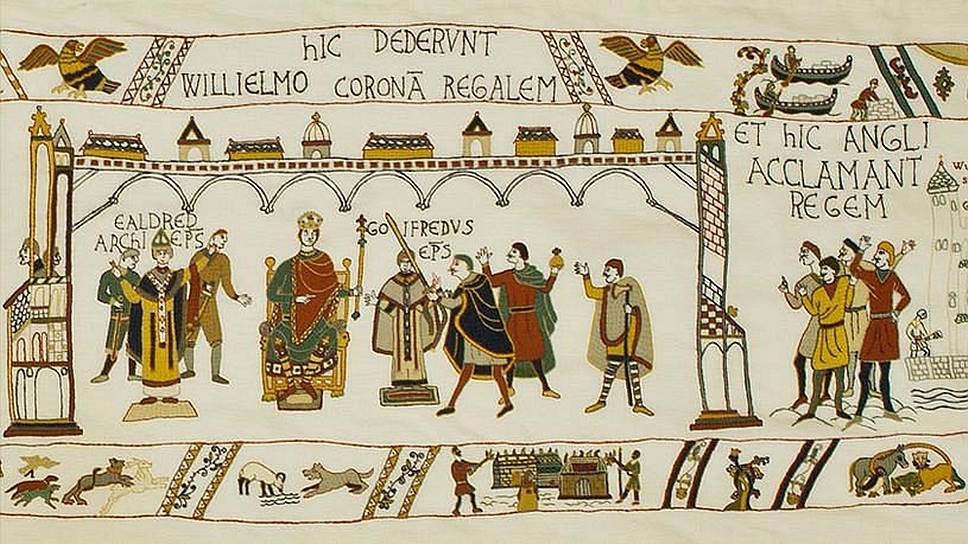 hIC DEDERVNT
WILLIELMO CORONĀ REGALEM
EALDRED
ARCHI EP̄S
GOIFREDVS
EP̄S
ET hIC ANGLI
ACCLAMANT
REGEM